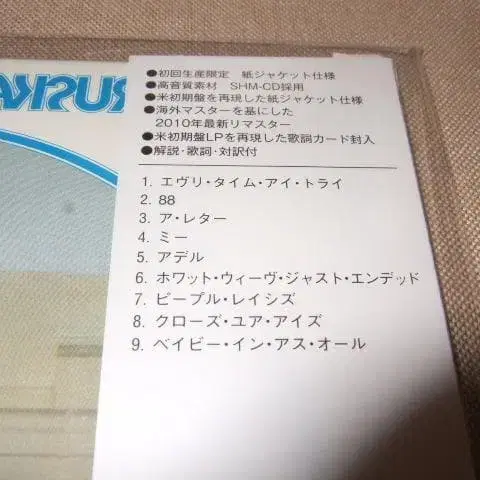 ●初回生産限定 紙ジャケット仕様
●高音質素材 SHM-CD採用
●米初期盤を再現した紙ジャケット仕様
●海外マスターを基にした
2010年最新リマスター
●米初期盤LPを再現した歌詞カード封入
●解説・歌詞・対訳付
1. エヴリ・タイム・アイ・トライ
2. 88
3. ア・レター
4. ミー
5. アデル
6. ホワット・ウィーヴ・ジャスト・エンデッド
7. ピープル・レイシズ
8. クローズ・ユア・アイズ
9. ベイビー・イン・アス・オール